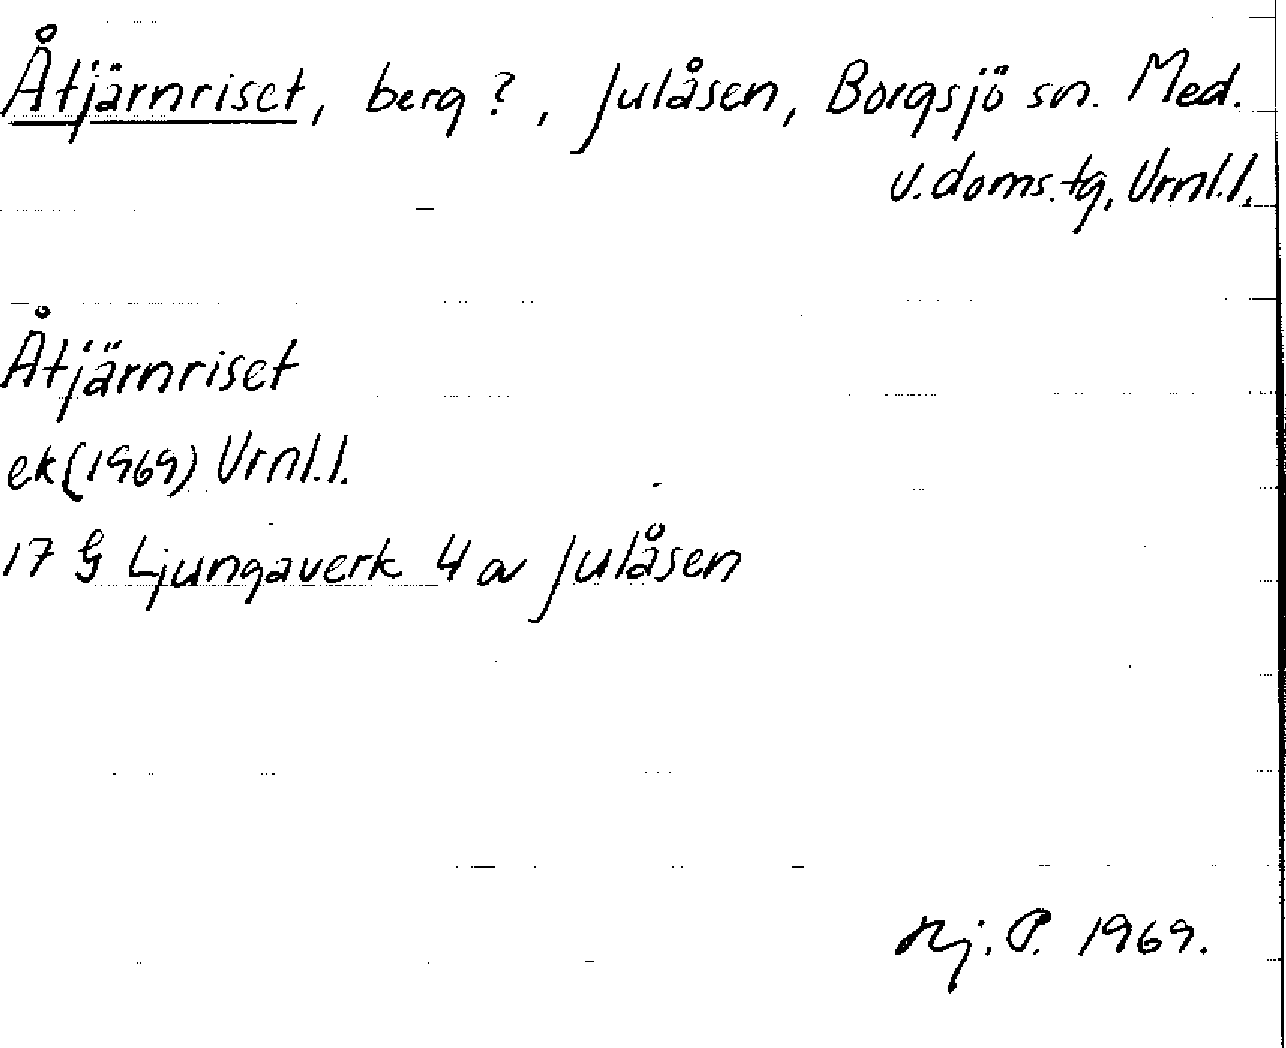 Åtjärnriset, berg?, Julåsen, Borgsjö sn. Med.
v. doms. tg, Vrnl.l.
Åtjärnriset
ek (1969) Vrnl.l.
17 G Ljungaverk 4 a Julåsen
Hj. P. 1969.